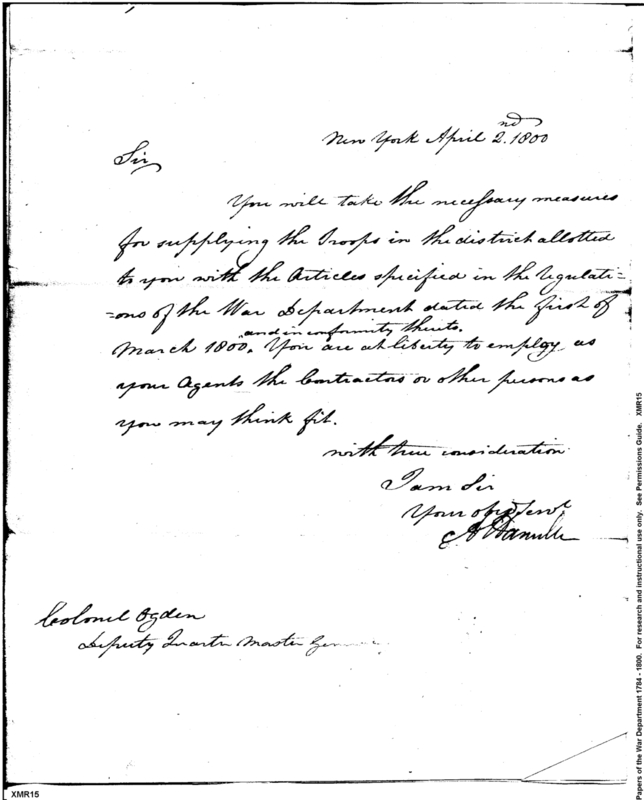 New York April 2.nd 1800
Sir
You will take the necessary measures
for supplying the Troops in the district allotted
to you with the Articles specified in the regulati=
=ons of the War Department dated the first of
and in conformity thereto.
March 1800. You are at liberty to employ as
your Agents the Contractors or other persons as
you may think fit.
with true consideration
I am Sir
Your obed Servt
A Hamilt
Colonel Ogden
Deputy Quarter Master Gen
XMR15
Papers of the War Department 1784 - 1800. For research and instructional use only. See Permissions Guide. XMR15